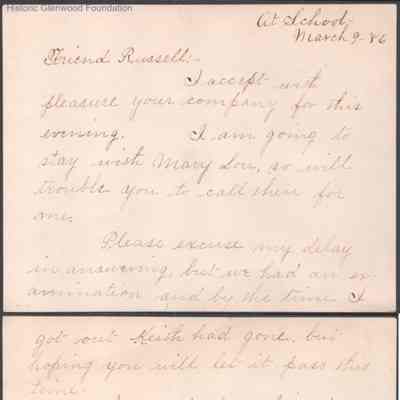 Historic Glenwood Foundation
At School,
March 9-86
Friend Russell:-
I accept with
pleasure your company for this
evening. I am going to
stay with Mary Lou, so will
trouble you to call there for
me.
Please excuse my delay
in answering, but we had an ex-
amination and by the time I
got out Keith had gone, but
hoping you will let it pass this
time.